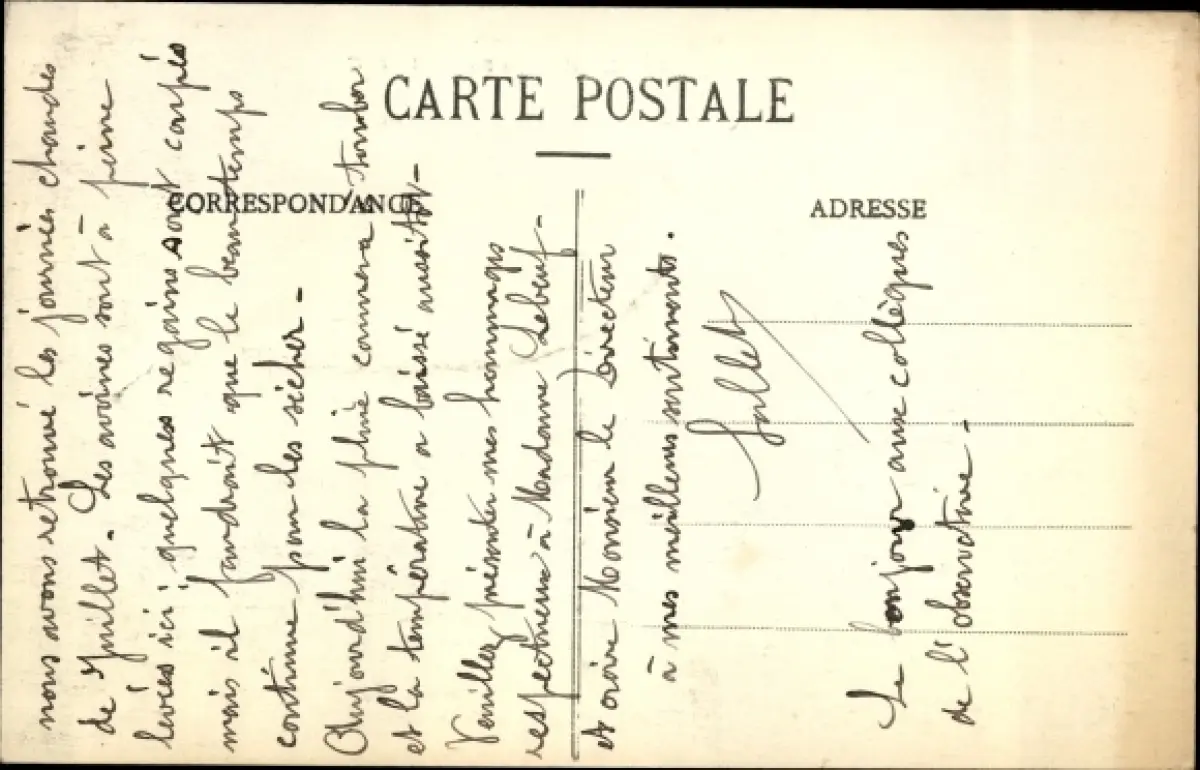 CARTE POSTALE
CORRESPONDANCE
ADRESSE
nous avons retrouvé les journées chaudes
de Juillet. Les avoines sont à peine
levées ici ; quelques regains sont coupés
mais il faudrait que le beau temps
continue pour les sécher -
Aujourd'hui la pluie commence à tomber
et la température a baissé aussitôt -
Veuillez présenter mes hommages
respectueux à Madame Lebeuf -
et croire Monsieur le Directeur
à mes meilleurs sentiments.
Le bonjour aux collègues
de l'observatoire -